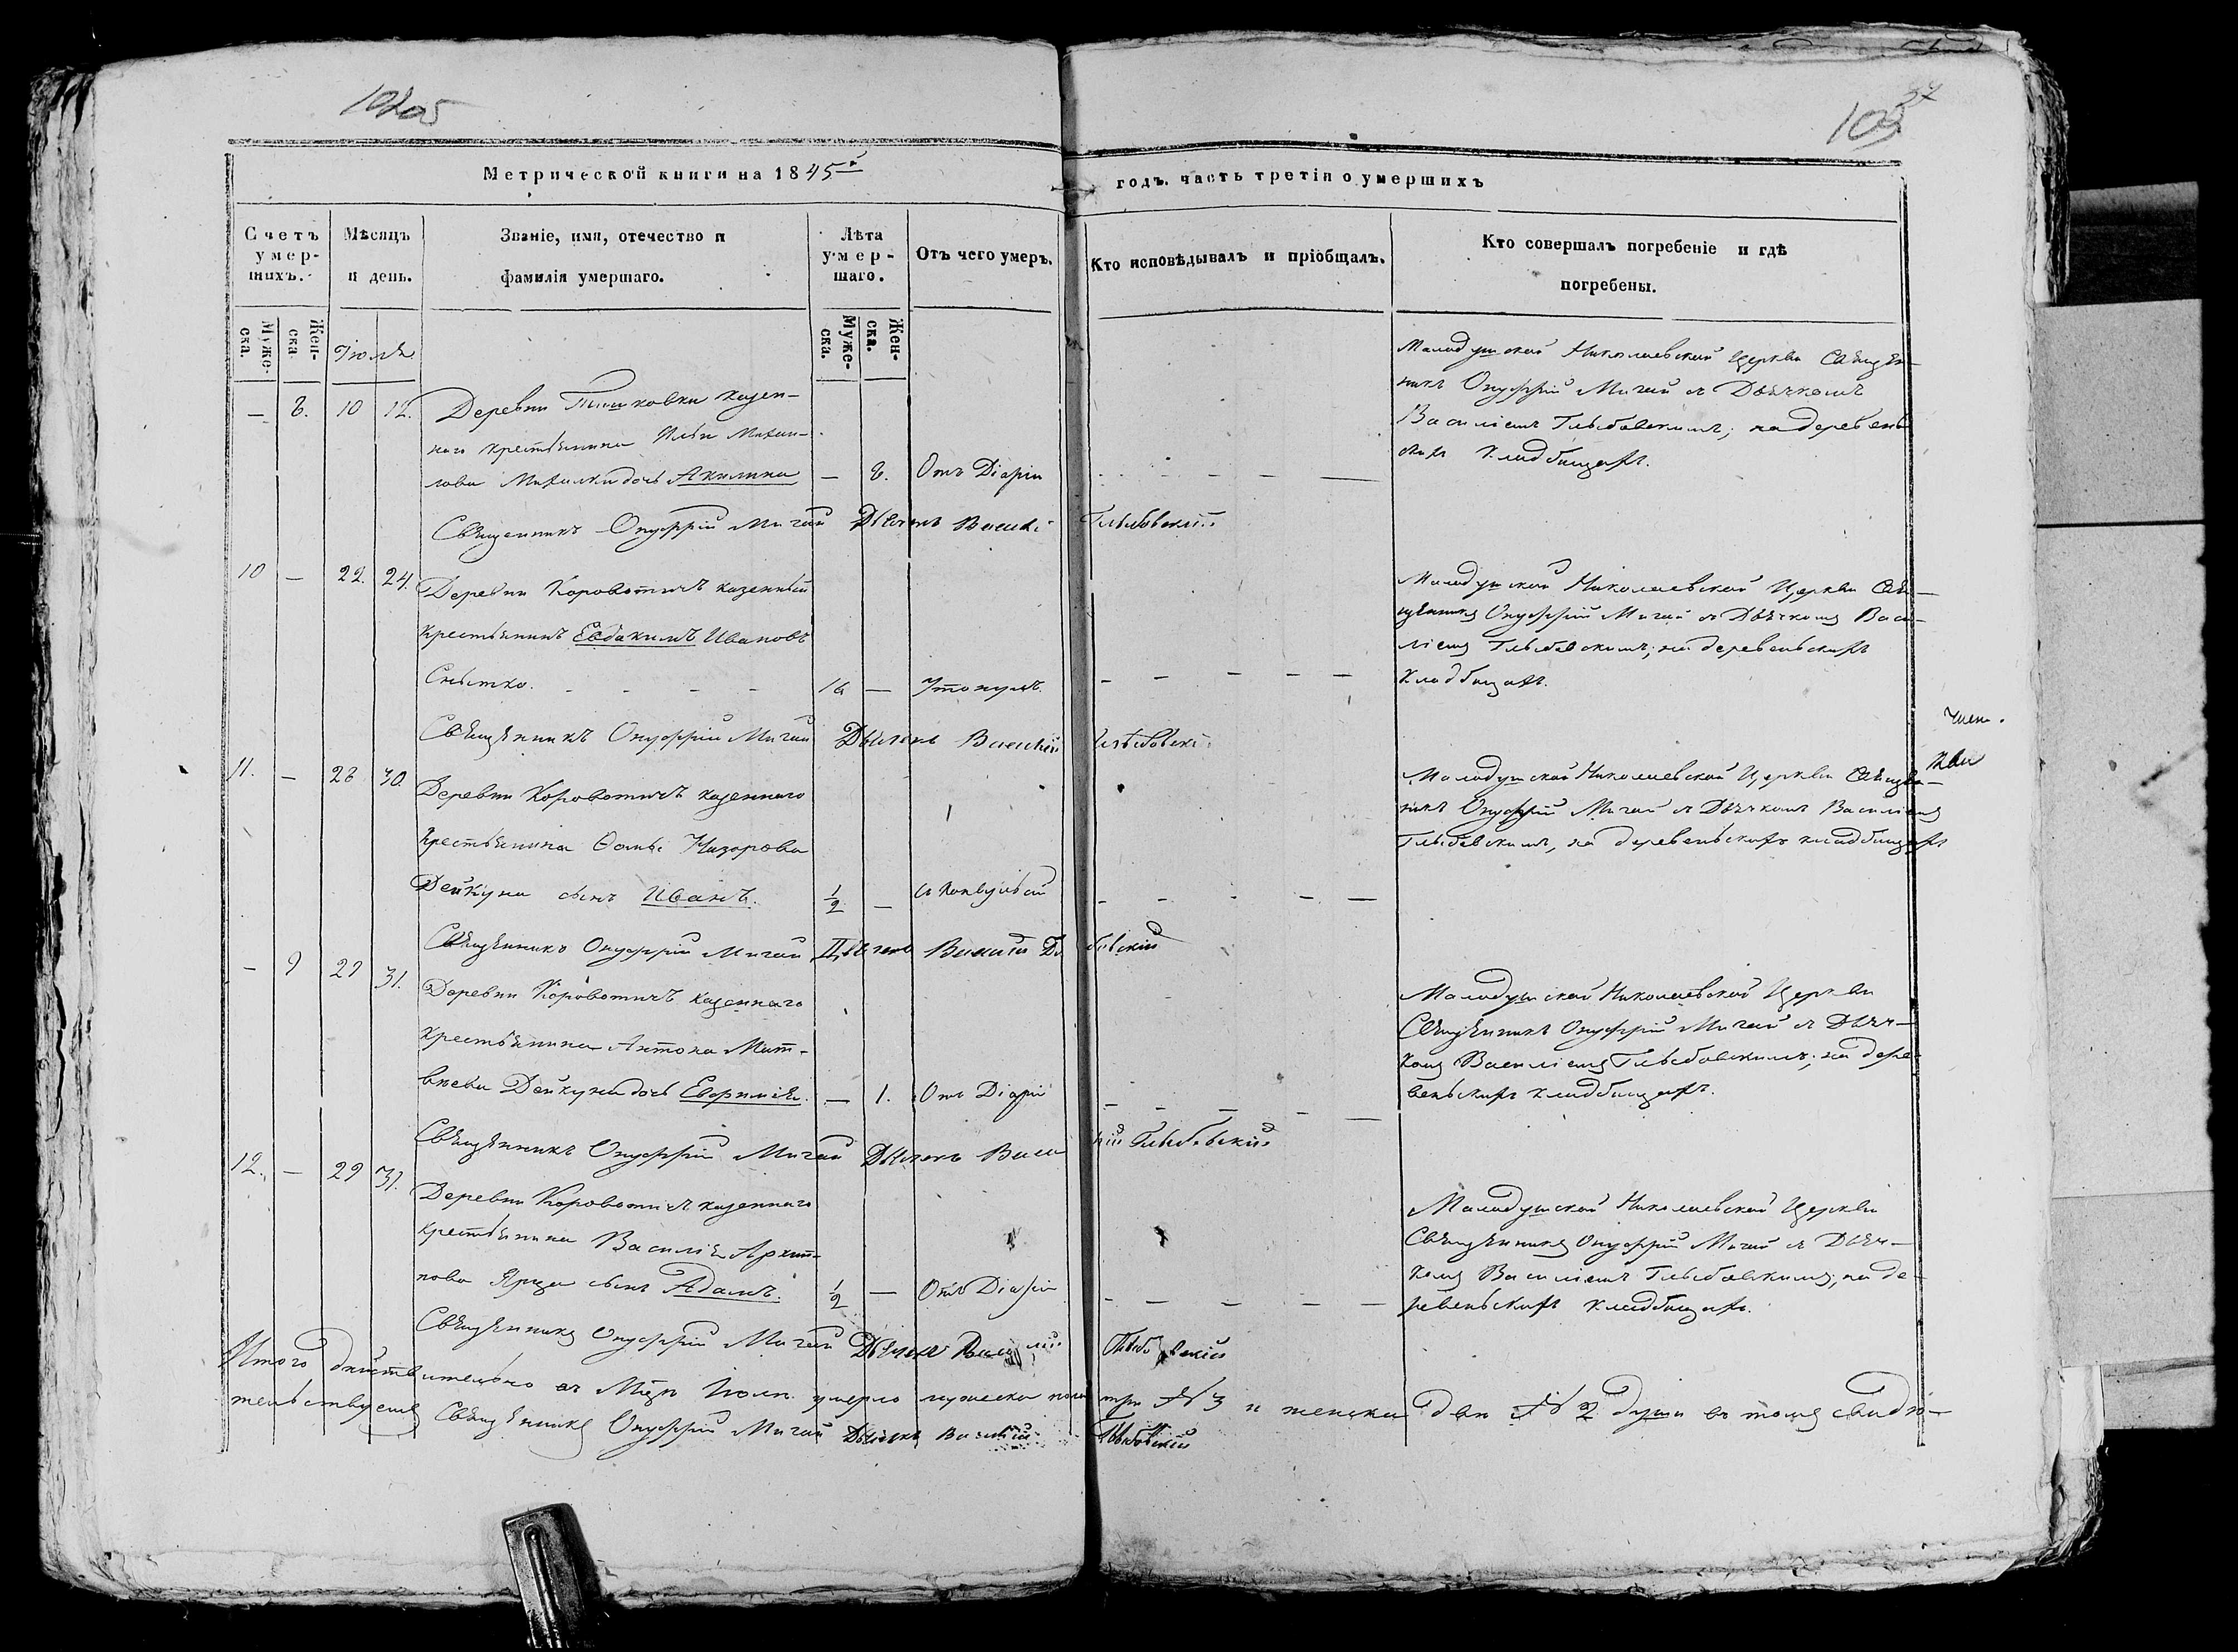 103
37
Метрической книги на 1845й
годъ. часть третія о умершихъ
Счетъ умер-шихъ.
Мѣсяцъ и день.
Званіе, имя, отечество и фамилія умершаго.
Лѣта умер-шаго.
Отъ чего умеръ.
Кто исповѣдывалъ и пріобщалъ.
Кто совершалъ погребеніе и гдѣ погребены.
Муже-ска.
Жен-ска
Муже-ска.
Жен-ска.
Іюль
— 8. 10 12.
Деревни казен-
наго крестьянина Ильи Михаи-
лова дочь Акилина — 8. Отъ Діаріи
Малодушской Николаевской Церкви Священ-
никъ Онуфрій Мигай съ Дьячкомъ
Василіемъ Глыбовскимъ; на деревень
скихъ кладбищахъ.
Священникъ Онуфрій Мигай Дьячекъ Василій Глыбовскій
10 — 22. 24.
Деревни Короватичъ казенный
крестьянинъ Евдакимъ Ивановъ
Снытко. 16 — Утонулъ.
Малодушской Николаевской Церкви Свя-
щенникъ Онуфрій Мигай съ Дьячкомъ Васи-
ліемъ Глыбовскимъ; на деревеньскихъ
кладбищахъ.
Священникъ Онуфрій Мигай Дьячекъ Василій Глыбовскій
11. — 28 30.
Деревни Короватичъ казеннаго
крестьянина Ѳомы Назорова
Дейкуна сынъ Иванъ. 1/2 — съ Конвульсій
Малодушской Николаевской Церкви Священ-
никъ Онуфрій Мигай съ Дьячкомъ Василіемъ
Глыбовскимъ, на деревеньскихъ кладбищахъ
Священникъ Онуфрій Мигай Дьячекъ Василій Глыбовскій
— 9 29 31.
Деревни Короватичъ казеннаго
крестьянина Антона Мат-
вѣева Дейкуна дочь Евфимія. — 1. Отъ Діаріи
Малодушской Николаевской Церкви
Священникъ Онуфрій Мигай съ Дьяч-
комъ Василіемъ Глыбовскимъ; на дере-
веньскихъ кладбищахъ.
Священникъ Онуфрій Мигай Дьячекъ Василій Глыбовскій
12. — 29 31.
Деревни Короватичъ казеннаго
крестьянина Василія Архип-
пова сынъ Адамъ. 1/2 — Отъ Діаріи
Малодушской Николаевской Церкви
Священникъ Онуфрій Мигай съ Дьяч-
комъ Василіемъ Глыбовскимъ; на де-
ревеньскихъ кладбищахъ.
Священникъ Онуфрій Мигай Дьячекъ Василій Глыбовскій
Итого дѣйствительно въ Мцѣ Іюлѣ умерло мужеска пола три № 3 и женска двѣ № 2 души въ томъ свидѣ-
тельствуемъ Священникъ Онуфрій Мигай Дьячекъ Василій Глыбовскій